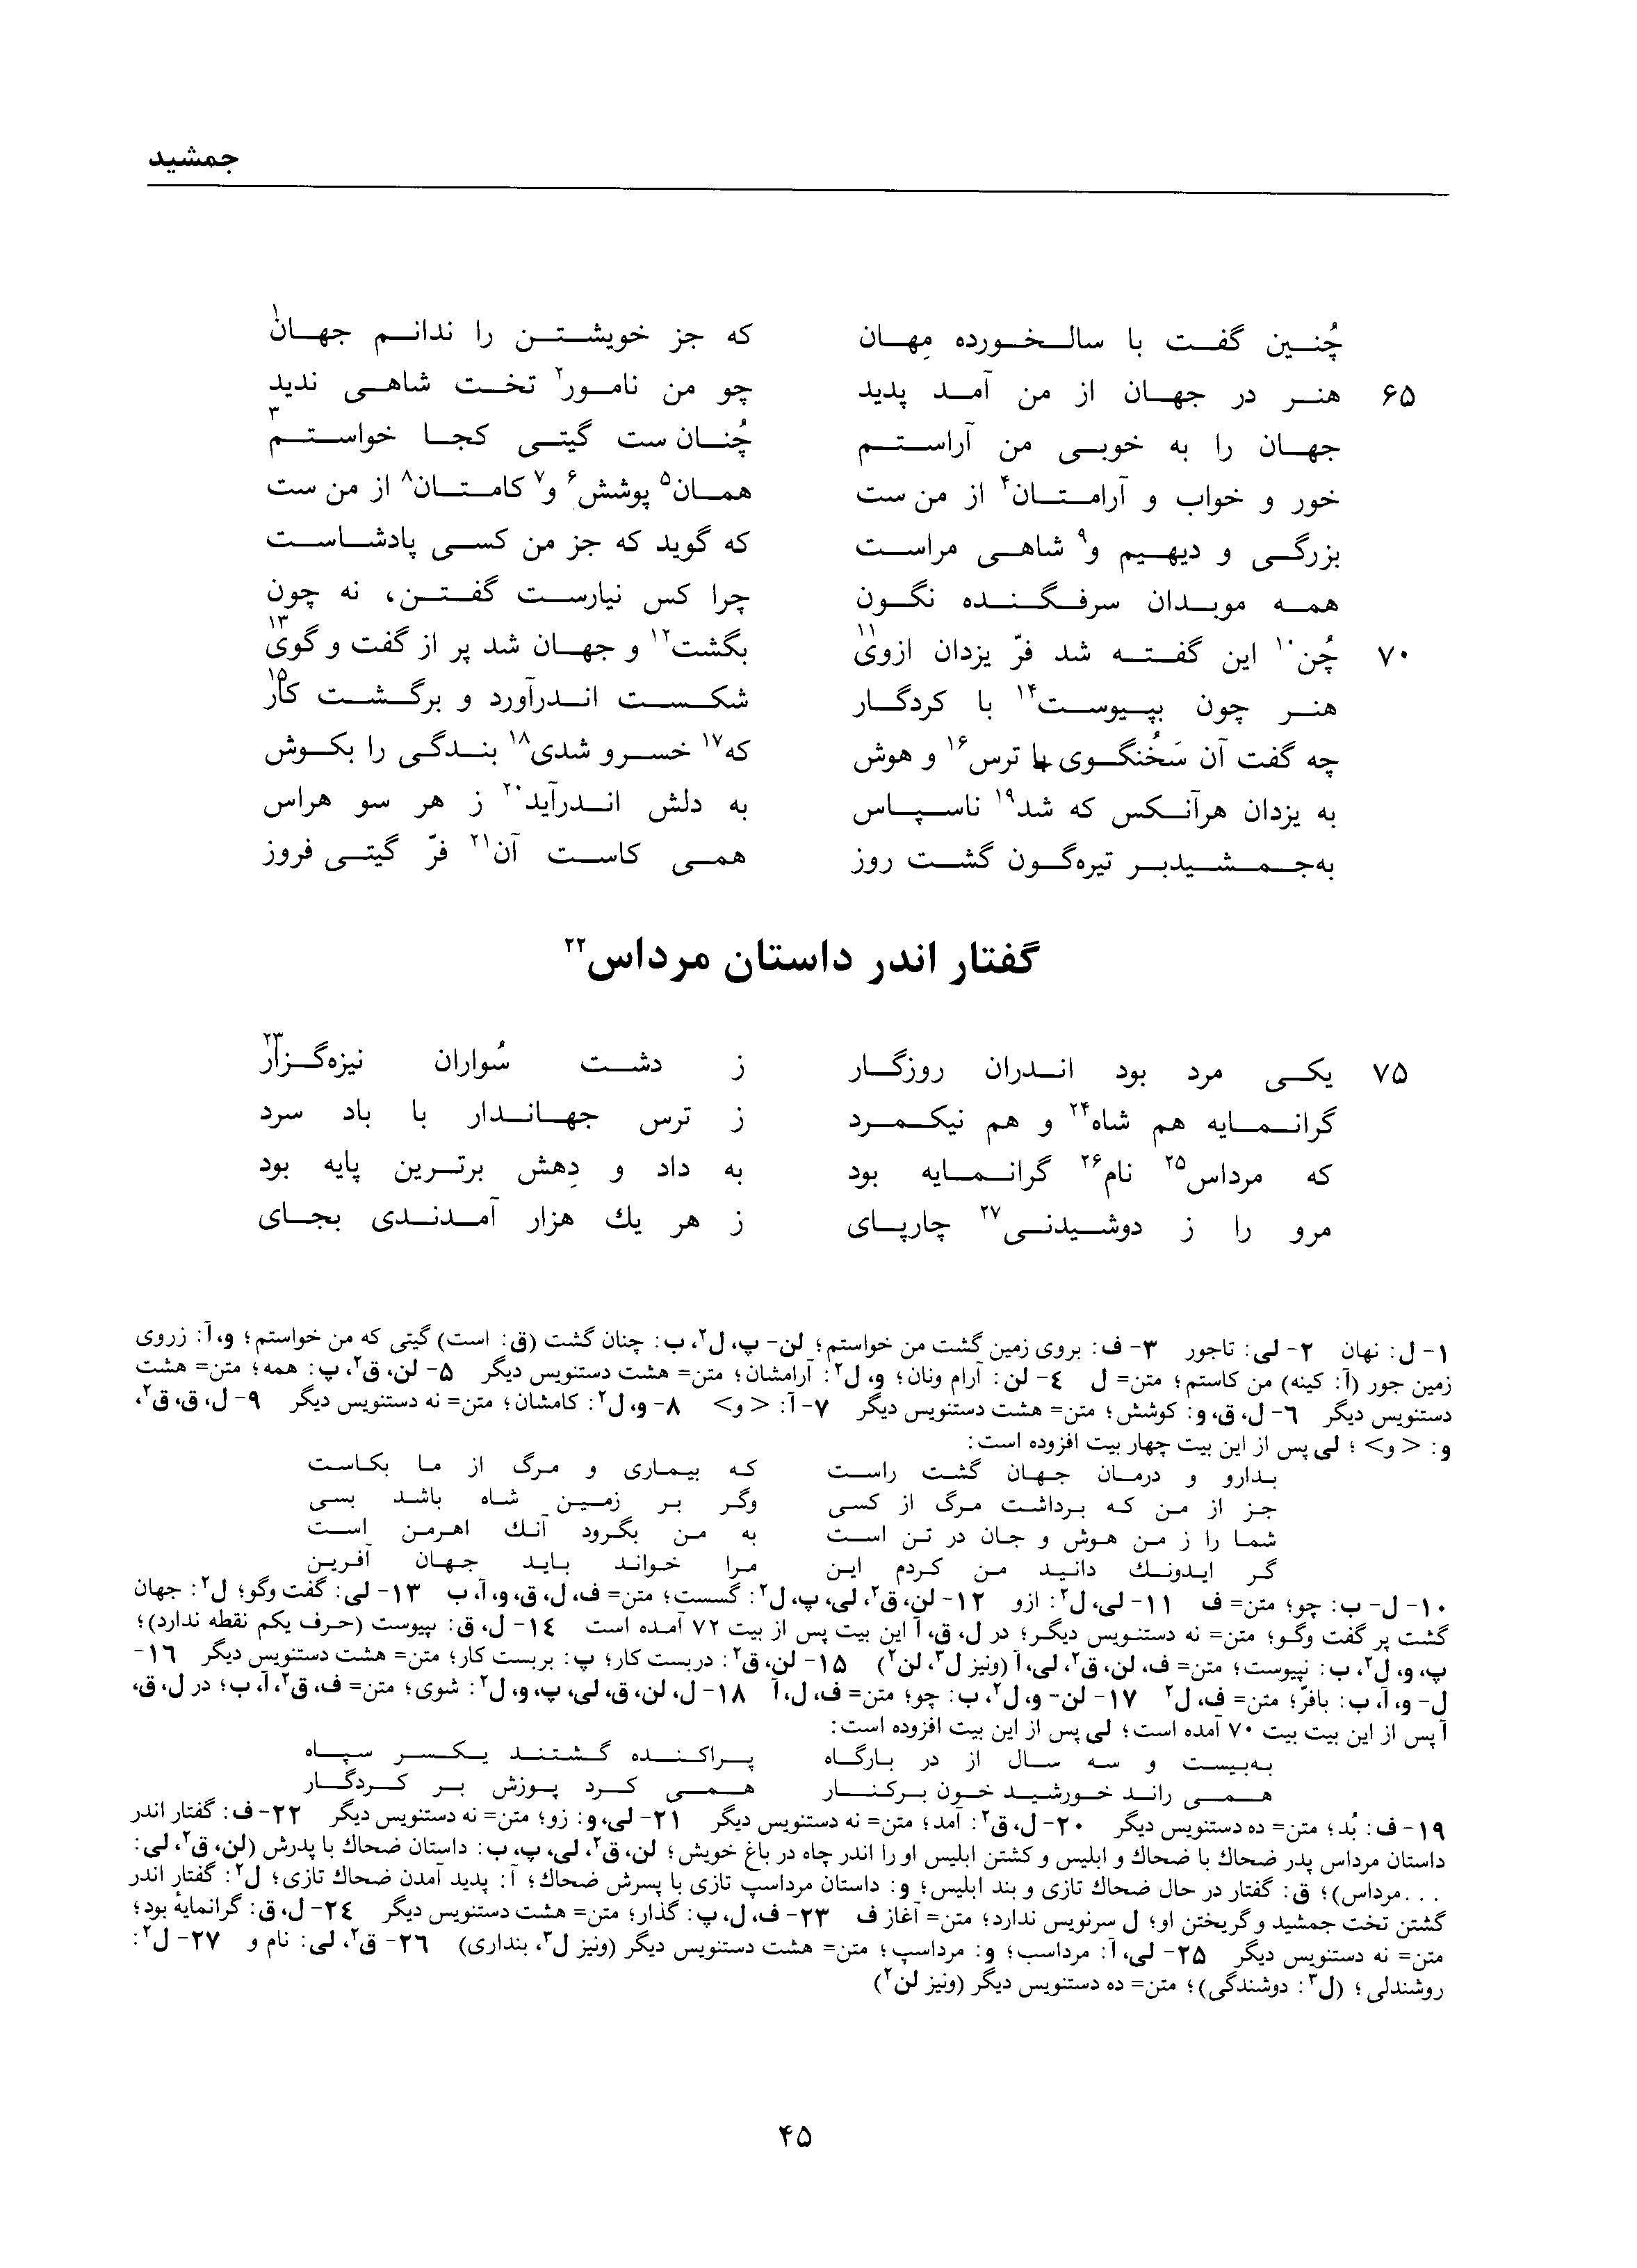 جمشید
چُنین گفت با سالخورده مِهان که جز خویشتن را ندانم جهان۱
۶۵ هنر در جهان از من آمد پدید چو من نامور۲ تخت شاهی ندید
جهان را به خوبی من آراستم چُنان ست گیتی کجا خواستم۳
خور و خواب و آرامتان۴ از من ست همان۵ پوشش۶ و۷ کامتان۸ از من ست
بزرگی و دیهیم و۹ شاهی مراست که گوید که جز من کسی پادشاست
همه موبدان سرفگنده نگون چرا کس نیارست گفتن، نه چون
۷۰ چُن۱۰ این گفته شد فرّ یزدان ازوی۱۱ بگشت۱۲ و جهان شد پر از گفت و گوی۱۳
هنر چون بپیوست۱۴ با کردگار شکست اندرآورد و برگشت کار۱۵
چه گفت آن سَخُنگوی با ترس۱۶ و هوش که۱۷ خسرو شدی۱۸ بندگی را بکوش
به یزدان هرآنکس که شد۱۹ ناسپاس به دلش اندرآید۲۰ ز هر سو هراس
به‌جمشیدبر تیره‌گون گشت روز همی کاست آن۲۱ فرّ گیتی فروز
گفتار اندر داستان مرداس۲۲
۷۵ یکی مرد بود اندران روزگار ز دشت سُواران نیزه‌گزار۲۳
گرانمایه هم شاه۲۴ و هم نیکمرد ز ترس جهاندار با باد سرد
که مرداس۲۵ نام۲۶ گرانمایه بود به داد و دِهش برترین پایه بود
مرو را ز دوشیدنی۲۷ چارپای ز هر یك هزار آمدندی بجای
۱- ل: نهان ۲- لی: تاجور ۳- ف: بروی زمین گشت من خواستم؛ لن- پ، ل۲، ب: چنان گشت (ق: است) گیتی که من خواستم؛ و، آ: زروی
زمین جور (آ: کینه) من کاستم؛ متن= ل ٤- لن: آرام ونان؛ و، ل۲: آرامشان؛ متن= هشت دستنویس دیگر ۵- لن، ق۲، پ: همه؛ متن= هشت
دستنویس دیگر ٦- ل، ق، و: کوشش؛ متن= هشت دستنویس دیگر ۷- آ: <و> ۸- و، ل۲: کامشان؛ متن= نه دستنویس دیگر ۹- ل، ق، ق۲،
و: <و> ؛ لی پس از این بیت چهار بیت افزوده است:
بدارو و درمان جهان گشت راست که بیماری و مرگ از ما بکاست
جز از من که برداشت مرگ از کسی وگر بر زمین شاه باشد بسی
شما را ز من هوش و جان در تن است به من بگرود آنك اهرمن است
گر ایدونك دانید من کردم این مرا خواند باید جهان آفرین
۱۰- ل- ب: چو؛ متن= ف ۱۱- لی، ل۲: ازو ۱۲- لن، ق۲، لی، پ، ل۲: گسست؛ متن= ف، ل، ق، و، آ، ب ۱۳- لی: گفت وگو؛ ل۲: جهان
گشت پر گفت وگو؛ متن= نه دستنویس دیگر؛ در ل، ق، آ این بیت پس از بیت ۷۲ آمده است ۱٤- ل، ق: پیوست (حرف یکم نقطه ندارد)؛
پ، و، ل۲، ب: نپیوست؛ متن= ف، لن، ق۲، لی، آ (ونیز ل۳، لن۲) ۱۵- لن، ق۲: دربست کار؛ پ: بربست کار؛ متن= هشت دستنویس دیگر ۱٦-
ل- و، آ، ب: بافرّ؛ متن= ف، ل۲ ۱۷- لن- و، ل۲، ب: چو؛ متن= ف، ل، آ ۱۸- ل، لن، ق، لی، پ، و، ل۲: شوی؛ متن= ف، ق۲، آ، ب؛ در ل، ق،
آ پس از این بیت بیت ۷۰ آمده است؛ لی پس از این بیت افزوده است:
به‌بیست و سه سال از در بارگاه پراکنده گشتند یکسر سپاه
همی راند خورشید خون برکنار همی کرد پوزش بر کردگار
۱۹- ف: بُد؛ متن= ده دستنویس دیگر ۲۰- ل، ق۲: آمد؛ متن= نه دستنویس دیگر ۲۱- لی، و: زو؛ متن= نه دستنویس دیگر ۲۲- ف: گفتار اندر
داستان مرداس پدر ضحاك با ضحاك و ابلیس و کشتن ابلیس او را اندر چاه در باغ خویش؛ لن، ق۲، لی، پ، ب: داستان ضحاك با پدرش (لن، ق۲، لی:
...مرداس)؛ ق: گفتار در حال ضحاك تازی و بند ابلیس؛ و: داستان مرداسپ تازی با پسرش ضحاك؛ آ: پدید آمدن ضحاك تازی؛ ل۲: گفتار اندر
گشتن تخت جمشید و گریختن او؛ ل سرنویس ندارد؛ متن= آغاز ف ۲۳- ف، ل، پ: گذار؛ متن= هشت دستنویس دیگر ۲٤- ل، ق: گرانمایهٔ بود؛
متن= نه دستنویس دیگر ۲۵- لی، آ: مرداسب؛ و: مرداسپ؛ متن= هشت دستنویس دیگر (ونیز ل۳، بنداری) ۲٦- ق۲، لی: نام و ۲۷- ل۲:
روشندلی؛ (ل۳: دوشندگی)؛ متن= ده دستنویس دیگر (ونیز لن۲)
۴۵